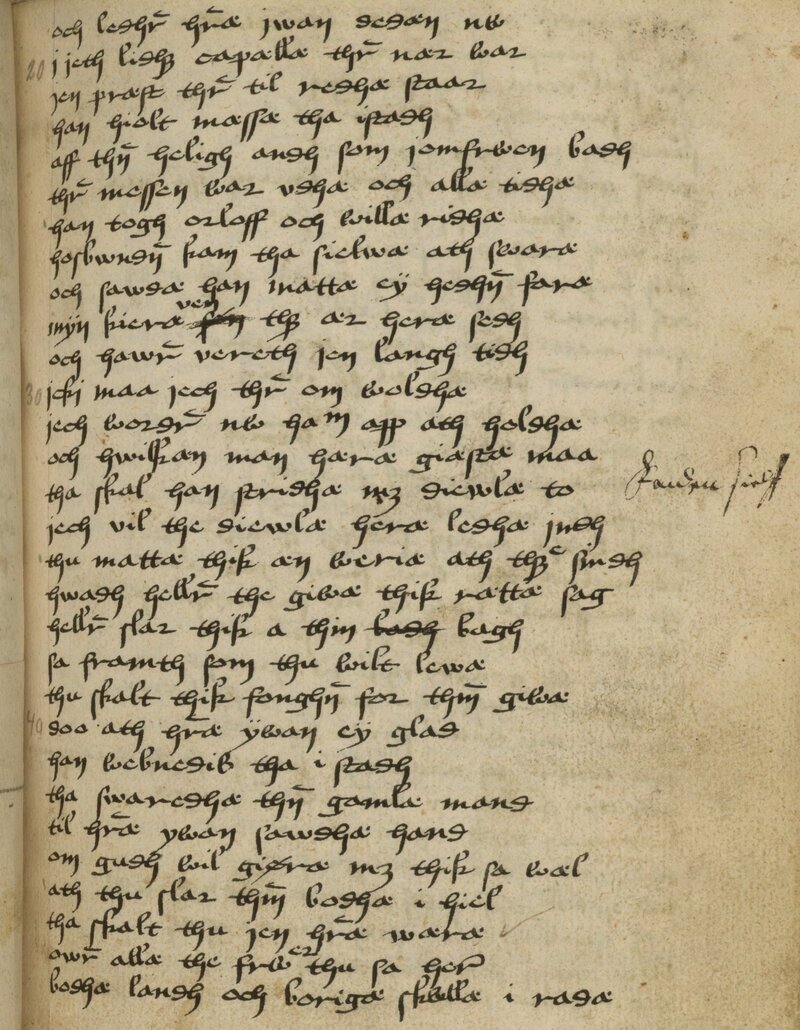 och ledher herræ jwan sedæn nw
j jeth lidhet capællæ ther nær war
jen præst ther til redhæ staar
han hiolt mæssæ tha istadh
aff then heligh andh som jomfrwen badh
ther messen war vdhæ och allæ tidhæ
han togh orloff och willæ ridhæ
hosbwnden kam tha sielwæ ath swaræ
och sawdæ han mattæ ey hedhen faræ
myn kieræ ven thet ær heræ sedh
och hawer vereth jen langh tidh
30 icki maa jech ther om woldhæ
jech wordher nw ham app ath holdhæ
och hwilkæn man hæræ giæstæ maa
tha skal han stridhæ mz diewlæ to
jech vil the diewlæ heræ ledhæ jndh
thu mattæ thik æn weriæ ath thet sindh
hwadh heller the giwæ thik rættæ sag
heller slar thik a thin bagh
sa framth som thu wilt lewæ
thu skalt thik fonghen for them giwæ
40 doo ath herræ ywan ey glad
han webnedis tha i stadh
tha swaredhæ then gamlæ mand
til herræ ywan sawdhæ hand
om gudh wil giøræ mz thik sa wæl
ath thu slar them bodhæ i hiel
tha skalt thu jen herræ wæræ
ower allæ the frwer thu sa her
bodhæ landh och borigæ skullæ i radæ